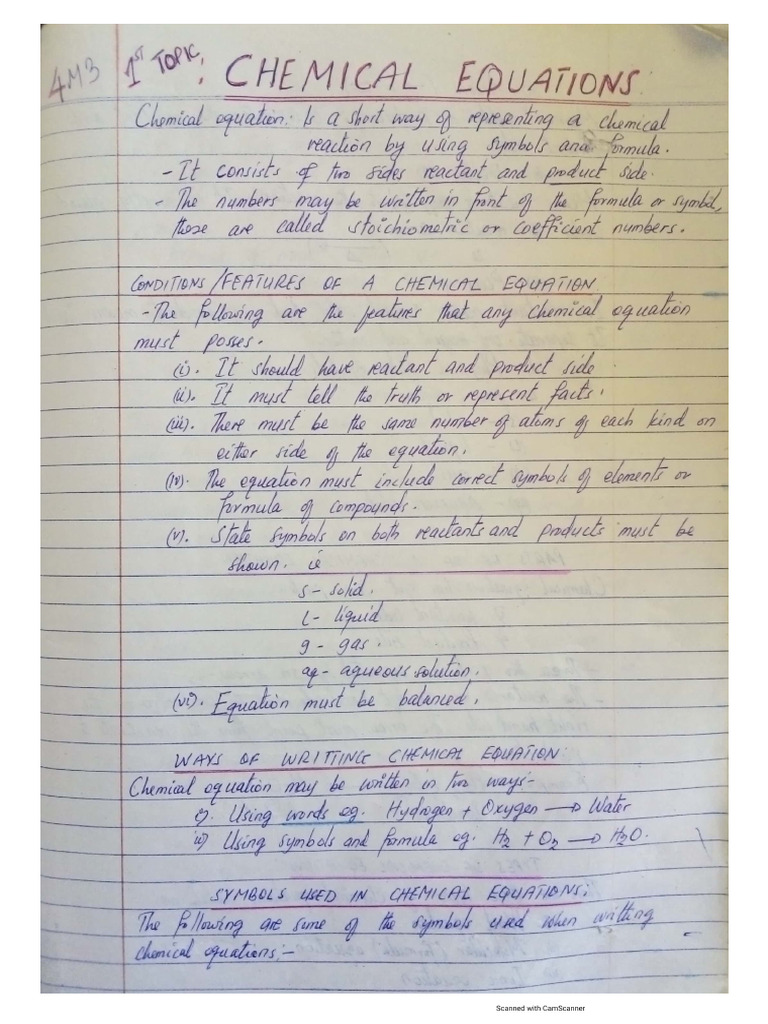 4M3 1ST TOPIC: CHEMICAL EQUATIONS:
Chemical equation: Is a short way of representing a chemical
reaction by using symbols and formula.
- It consists of two sides reactant and product side.
- The numbers may be written in front of the formula or symbol,
these are called stoichiometric or coefficient numbers.
CONDITIONS/FEATURES OF A CHEMICAL EQUATION
- The following are the features that any chemical equation
must posses.
(i). It should have reactant and product side
(ii). It must tell the truth or represent facts.
(iii). There must be the same number of atoms of each kind on
either side of the equation.
(iv). The equation must include correct symbols of elements or
formula of compounds.
(v). State symbols on both reactants and products must be
shown. ie
s - solid.
l - liquid
g - gas.
aq - aqueous solution.
(vi). Equation must be balanced.
WAYS OF WRITTING CHEMICAL EQUATION:
Chemical equation may be written in two ways:-
i). Using words eg. Hydrogen + Oxygen → Water
ii) Using symbols and formula eg. H2 + O2 → H2O.
SYMBOLS USED IN CHEMICAL EQUATIONS:
The following are some of the symbols used when writting
chemical equations:-
Scanned with CamScanner